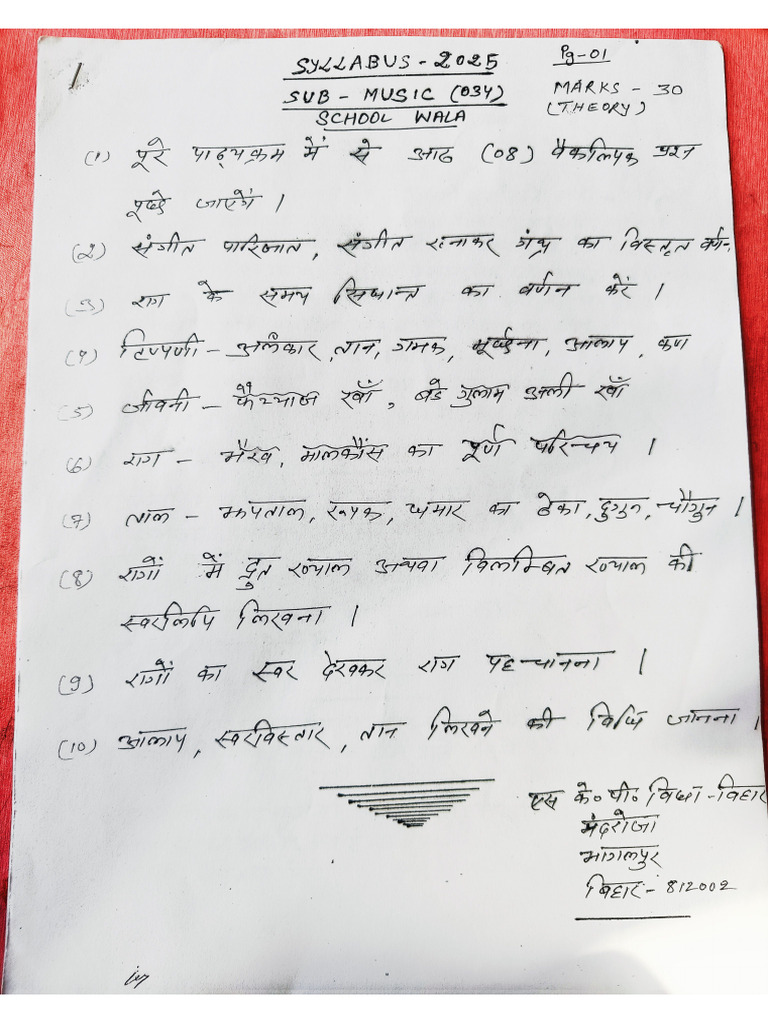 1
SYLLABUS - 2025
Pg-01
SUB - MUSIC (034)
MARKS - 30
SCHOOL WALA
(THEORY)
(1) पूरे पाठ्यक्रम में से आठ (08) वैकल्पिक प्रश्न
पूछे जाएगें ।
(2) संगीत पारिजात, संगीत रत्नाकर ग्रंथ का विस्तृत वर्णन.
(3) राग के समय सिद्धान्त का वर्णन करें ।
(4) टिप्पणी - अलंकार, तान, गमक, मूर्च्छना, आलाप, कण
(5) जीवनी - फैय्याज खाँ, बडे गुलाम अली खाँ
(6) राग - भैरव, मालकौंस का पूर्ण परिचय ।
(7) ताल - झपताल, रूपक, धमार का ठेका, दुगुन, चौगुन ।
(8) रागों में द्रुत ख्याल अथवा विलम्बित ख्याल की
स्वरलिपि लिखना ।
(9) रागों का स्वर देखकर राग पहचानना ।
(10) आलाप, स्वरविस्तार, तान लिखने की विधि जानना ।
एस के० पी० विद्या - विहार
मंदरोजा
भागलपुर
बिहार - 812002